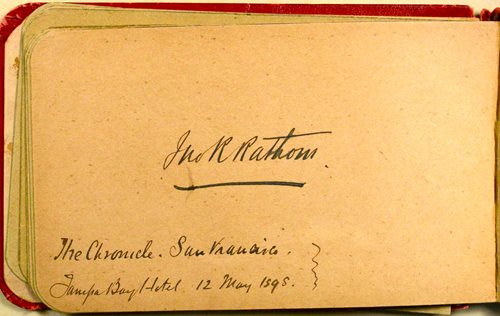 Jno R Rathom.
The Chronicle. San Francisco.
Tampa Bay Hotel. 12 May 1898.